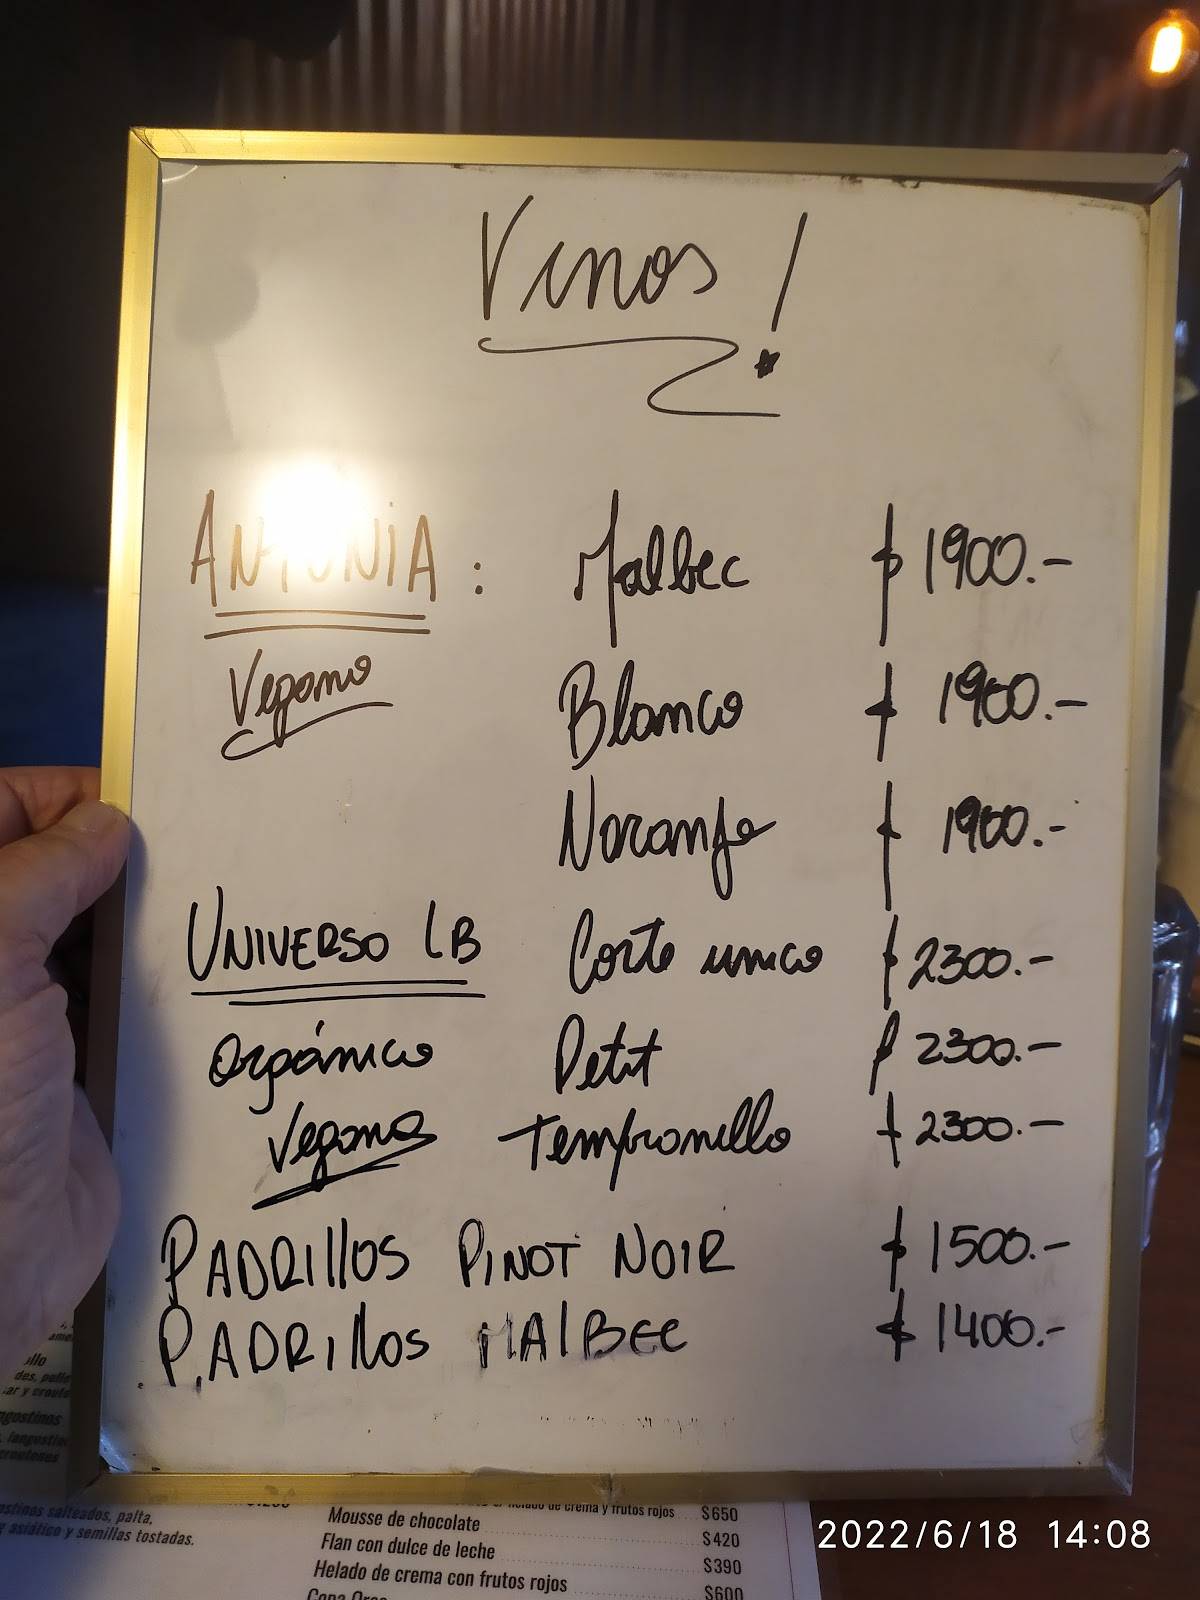 Vinos!
ANTONIA: Malbec $ 1900.-
Vegano Blanco $ 1900.-
Naranja $ 1900.-
UNIVERSO LB Corte unico $ 2300.-
Orgánico Petit $ 2300.-
Vegano Tempranillo $ 2300.-
PADRIllOS PINOT NOIR $ 1500.-
PADRIllos MAlBEC $ 1400.-
ollo
des,
ar y
langostinos
croutones
salteados, palta,
asiático y semillas tostadas.
helado de crema y frutos rojos $650
Mousse de chocolate $420
Flan con dulce de leche $390
Helado de crema con frutos rojos $600
2022/6/18 14:08